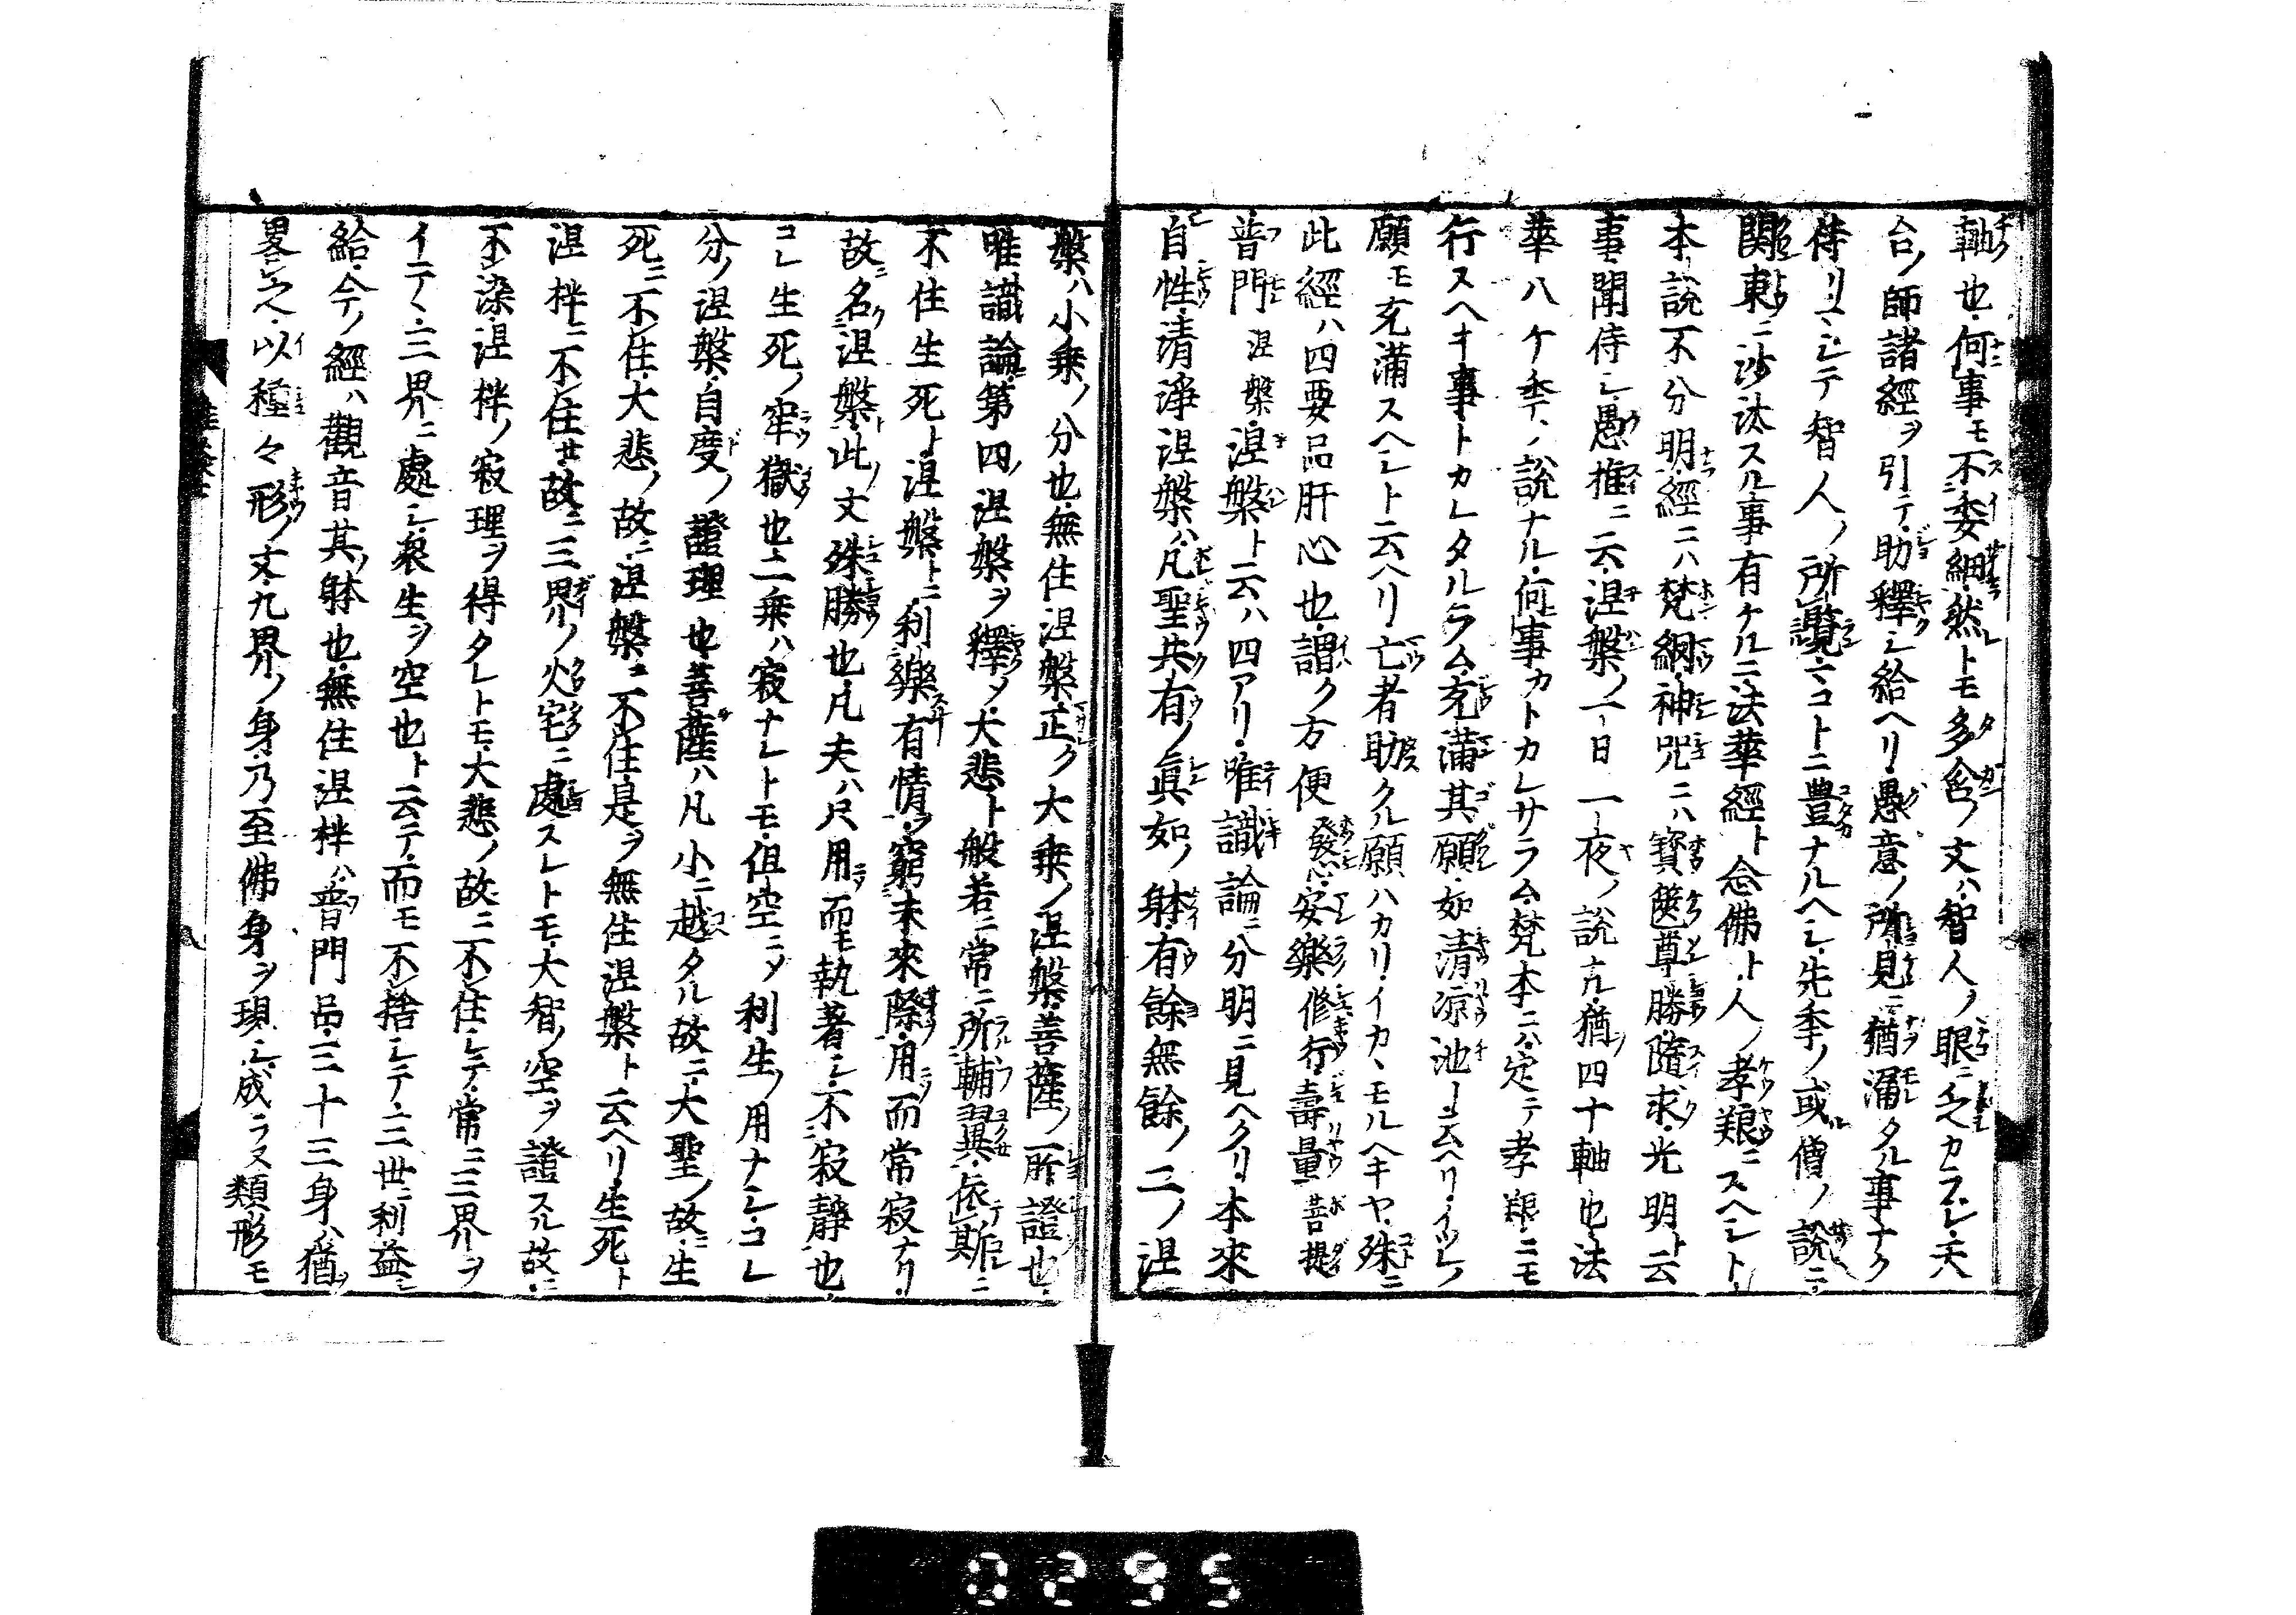 軸也何事モ不委細然トモ多含ノ文ハ智人ノ眼ニ之カラレ天
台ノ師諸經ヲ引テ助釋シ給ヘリ愚意ノ所見ニ猶漏タル事ナク
侍リマシテ智人ノ所覽ニコトニ豊ナルヘシ先季ノ或僧ノ說ニテ
関東ニ沙汰スル事有ケルニ法華經ト念佛ト人ノ孝粮ニスヘシト
本說不分明經ニハ梵網神咒ニハ寳篋尊勝隨求光明ト云
事聞侍シ愚推ニ云涅槃ノ一日一夜ノ說九猶四十軸也法
華八ケ季ノ說ナル何事カトカレサラム梵本ニハ定テ孝粮ニモ
行スヘキ事トカレタルラム充滿其願如清凉池ト云ヘリイツレノ
願モ充滿スヘシト云ヘリ亡者助クル願ハカリイカヽモルヘキヤ殊ニ
此經ハ四要品肝心也謂ク方便發心安樂修行壽量菩提
普門涅槃涅槃ト云ハ四アリ唯識論ニ分明ニ見ヘタリ本來
自性清淨涅槃ハ凡聖共有ノ眞如ノ躰有餘無餘ノ二ノ涅
槃ハ小乗ノ分也無住涅槃正ク大乗ノ涅槃菩薩ノ所證也
唯識論第四ノ涅槃ヲ釋メ大悲ト般若ニ常ニ所輔翼依斯ニ
不住生死ト涅槃トニ利樂有情ヲ窮未來際用而常寂ナリ
故ニ名ク涅槃ト此ノ文殊勝也凡夫ハ只用而モ執著シ不寂靜也
コレ生死ノ牢獄也二乗ハ寂ナレトモ但空ニメ利生ノ用ナシコレ
分ノ涅槃自度ノ證理也菩薩ハ凡小ニ越タル故ニ大聖ノ故ニ生
死ニ不住大悲ノ故ニ涅槃ニ不住是ヲ無住涅槃ト云ヘリ生死ト
涅柈ニ不住セ故ニ三界ノ火宅ニ處スレトモ大智ノ空ヲ證スル故ニ
不染涅柈ノ寂理ヲ得タレトモ大悲ノ故ニ不住シテ常ニ三界ヲ
イテヽ三界ニ處シ衆生ヲ空也ト云テ而モ不捨シテ三世ニ利益シ
給今ノ經ハ觀音其躰也無住涅柈ハ普門品三十三身ハ猶ヲ
畧之以種々形ノ文九界ノ身乃至佛身ヲ現シ成ラヌ類形モ
0295